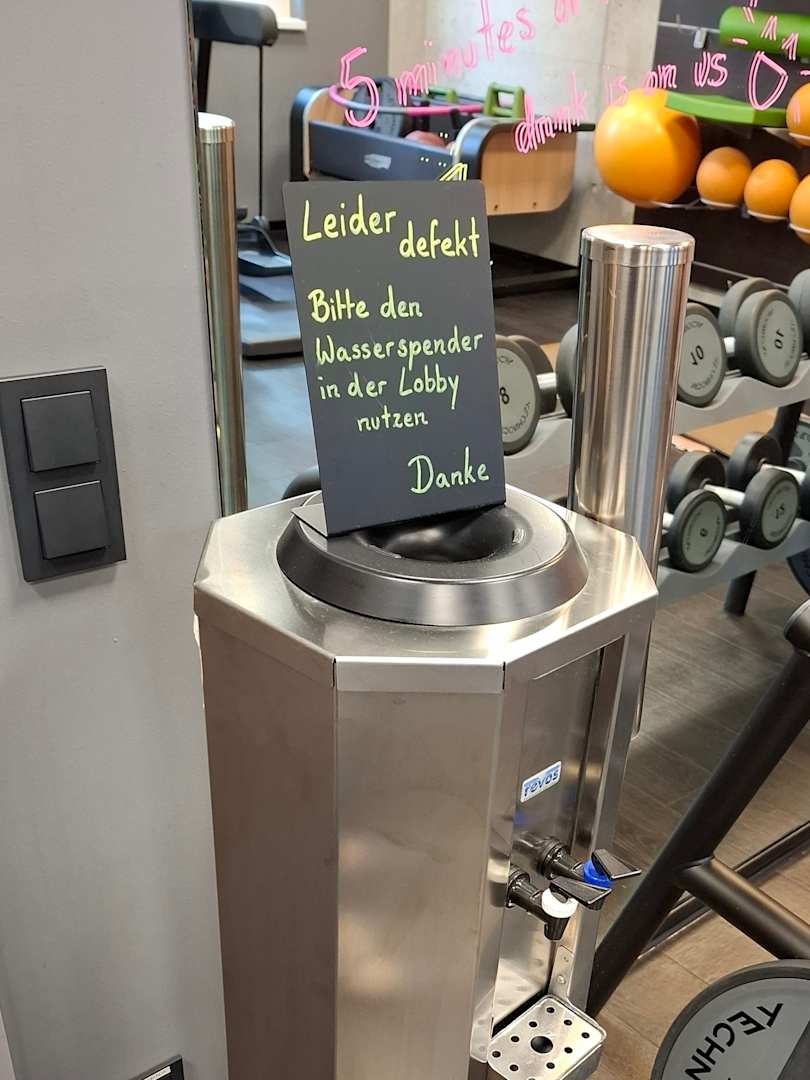 5 minutes
drunk is
Leider
defekt
Bitte den
Wasserspender
in der Lobby
nutzen
Danke
revos
8
10
10
TECHN